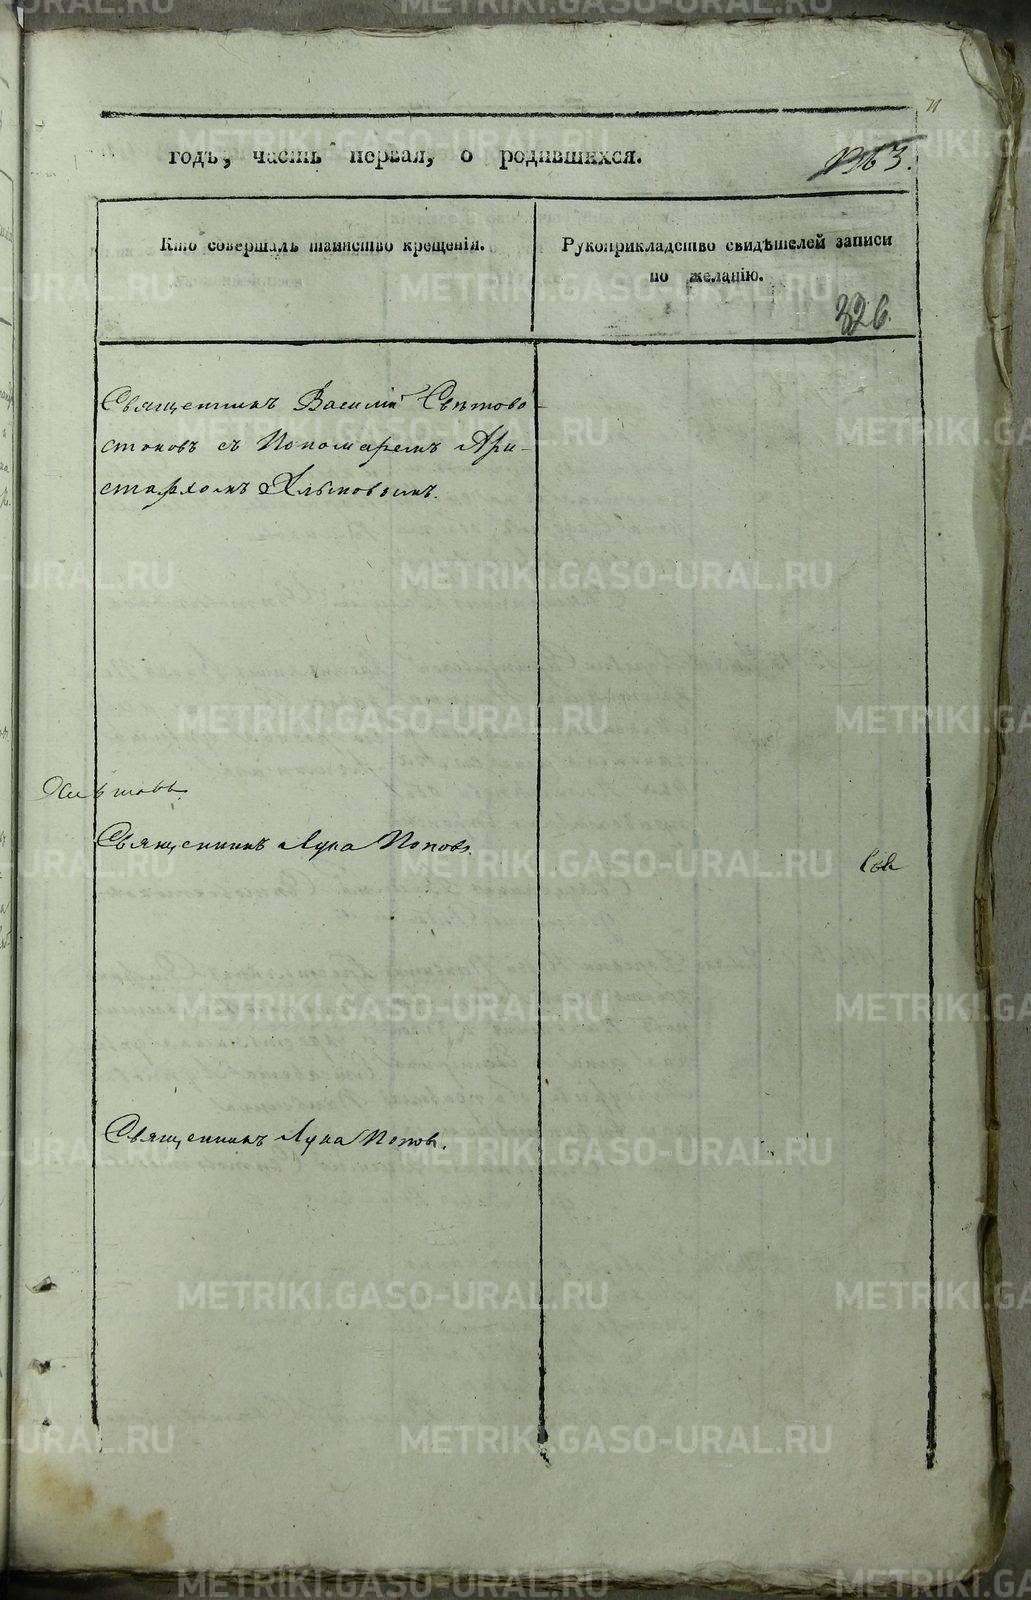 годъ, часть первая, о родившихся.
1363.
Кто совершалъ таинство крещенія.
Рукоприкладство свидѣтелей записи
по желанію.
326.
Священникъ Василій Свѣтово-
стоковъ съ Пономаремъ Ари-
стархомъ Хлыновымъ.
Священникъ Лука Поповъ.
Священникъ Лука Поповъ.
METRIKI.GASO-URAL.RU